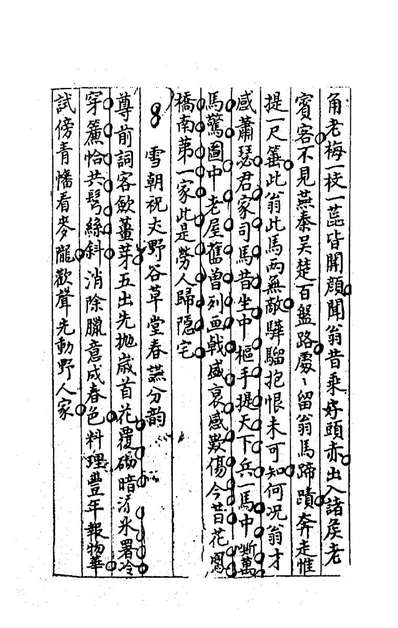 角老梅一枝一蕊皆開顔聞翁昔乘好頭赤出入諸矦老
賓客不見燕秦吴楚百盤路處〻留翁馬蹄蹟奔走惟
提一尺箠此翁此馬兩無敵驊騮抱恨未可知何況翁才
感蕭瑟君家司馬昔坐中樞手提天下兵一馬中斷萬
馬驚圖中老屋舊曾列畫戟盛衰感歎傷今昔花
橋南第一家此是勞人歸隱宅
雪朝祝天野谷草堂春讌分韵
尊前詞客飲薑芽五出先抛嵗首花覆磡暗 氷署冷
穿簾恰共鬂絲斜消除臘意成春色料理豐年報物華
試傍青幡看麥隴歡聲先動野人家